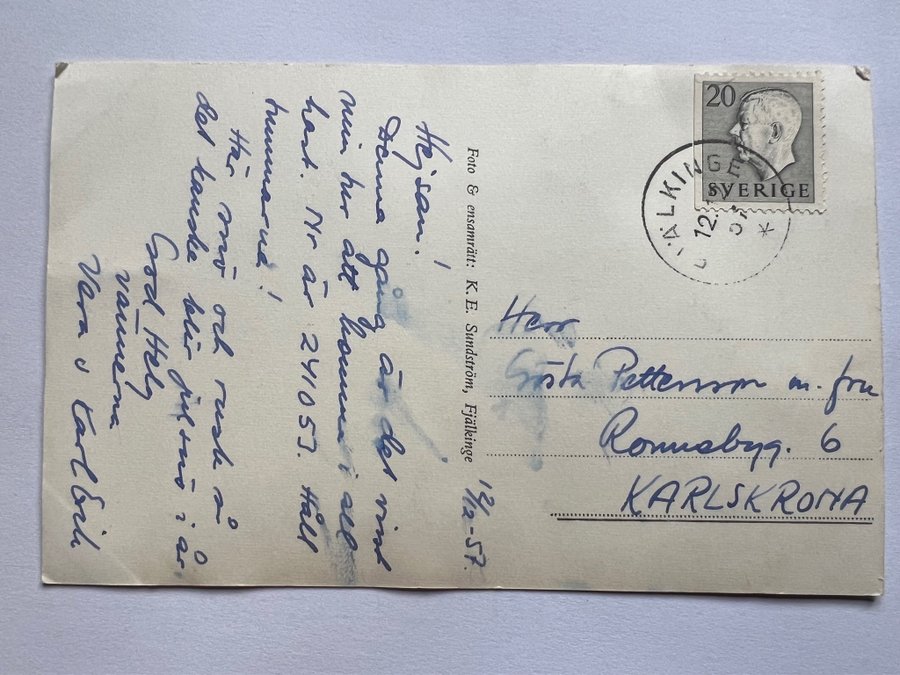 12/12-57.
Hejsan!
Denna gång är det visst
min tur att komma i all
hast. Nr är 241053. Håll
tummarna!
Här snö och rusk så
det kanske blir julsnö i år
God Helg
vännerna
Vera o Karl Erik
Foto & ensamrätt: K. E. Sundström, Fjälkinge
20
SVERIGE
ÄLKINGE
12.
Herr
Gösta Pettersson m. fru
Ronnebyg. 6
KARLSKRONA